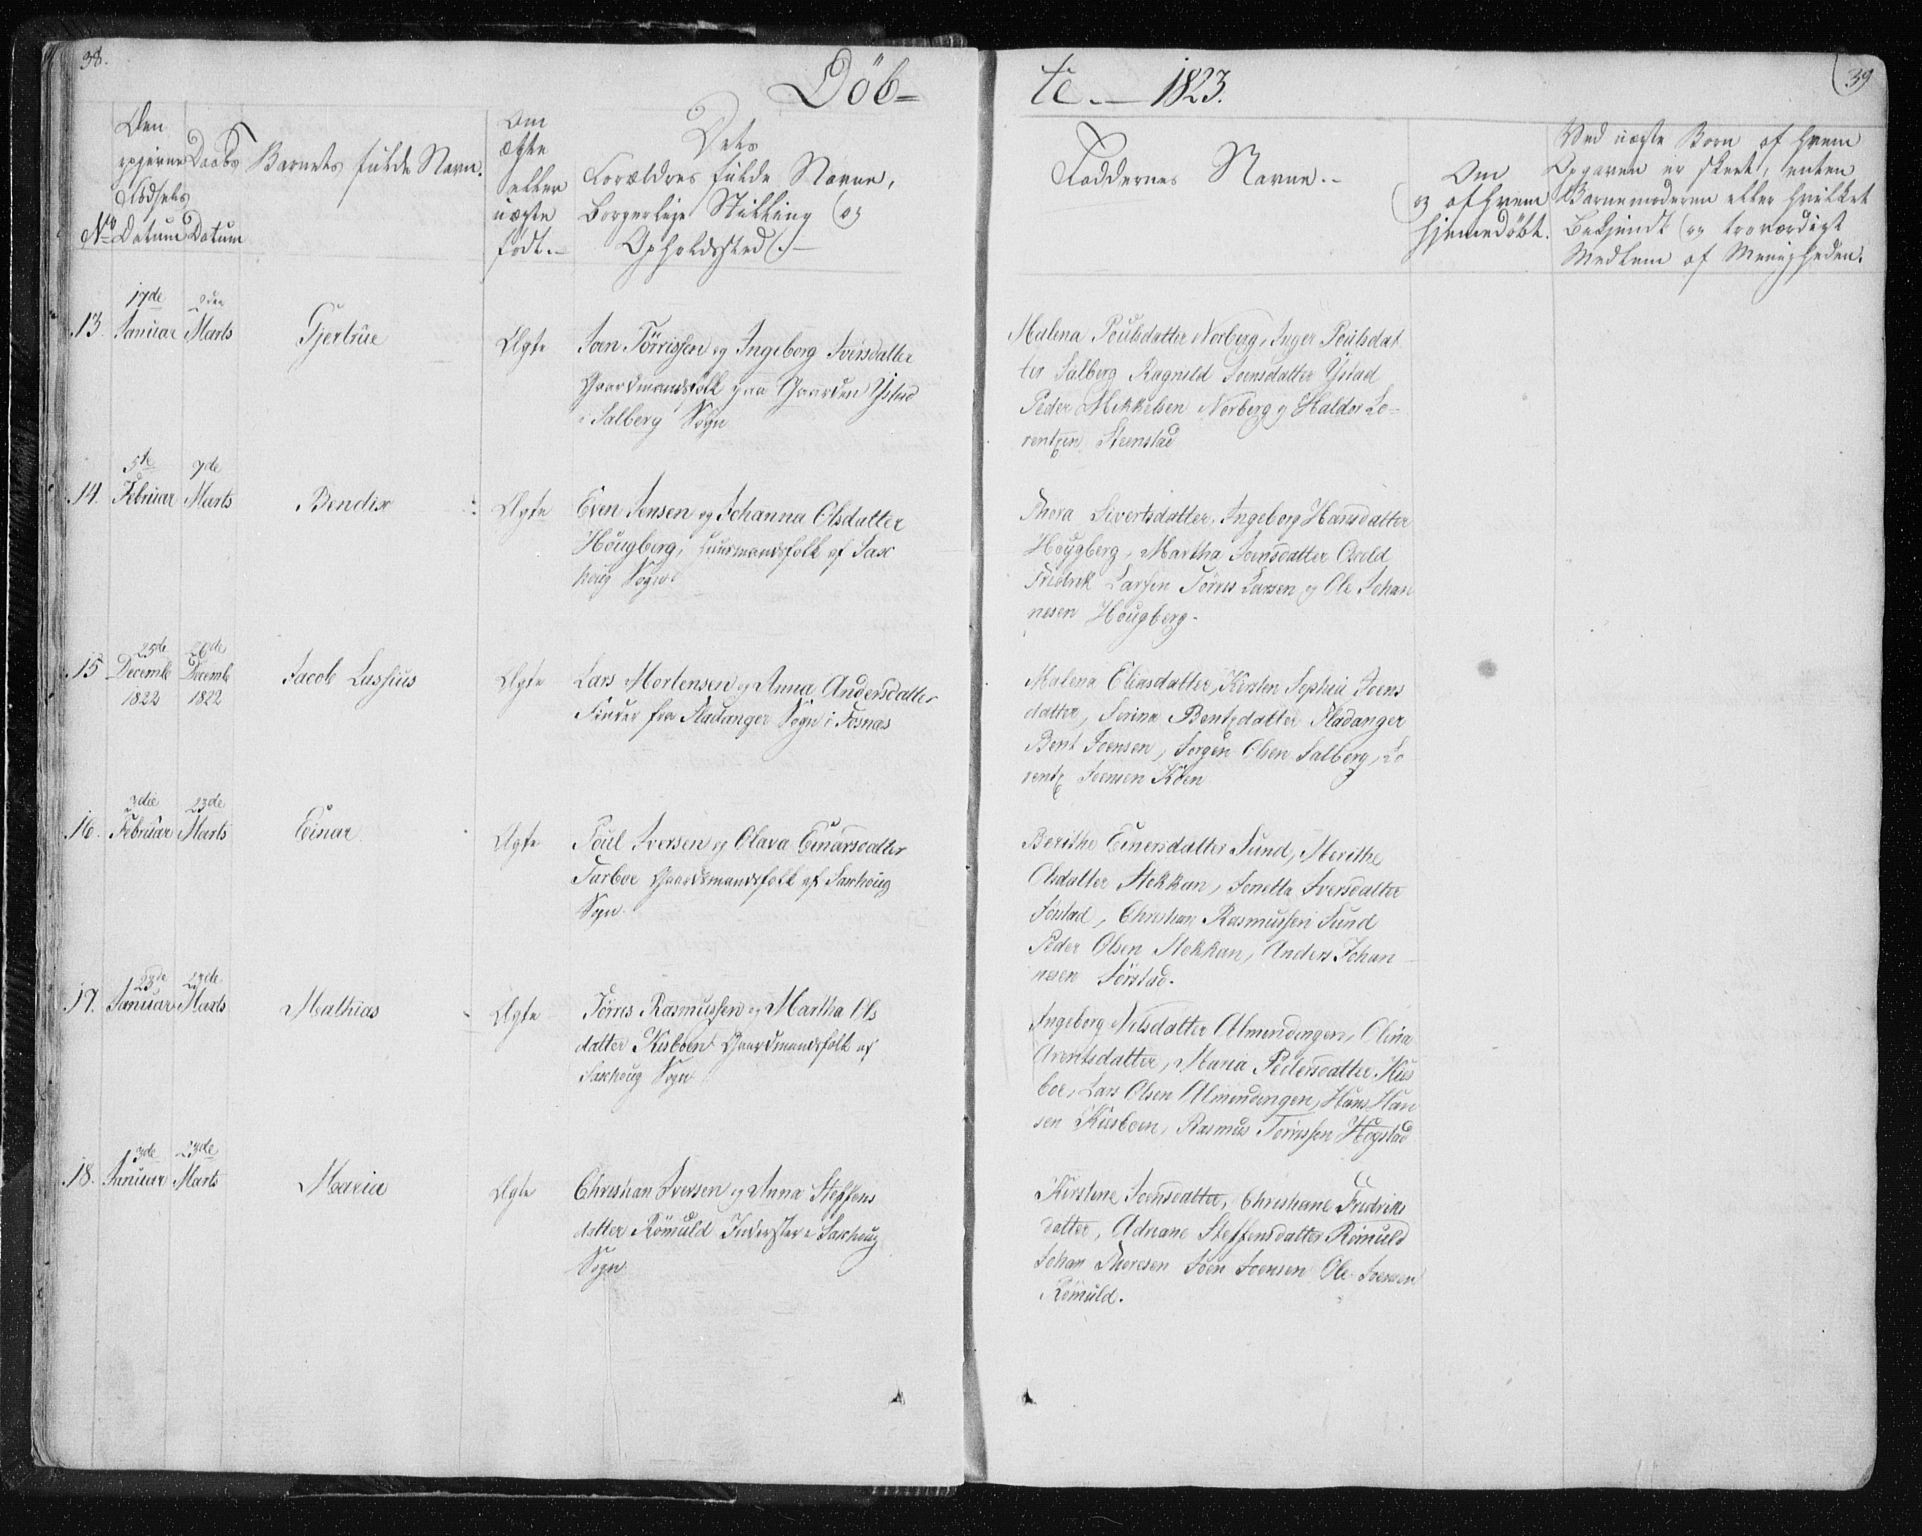 38.
Döb=
te. — 1823.
39
Den
opgivne
Fødsels
No Datum
Daabs
Datum
Barnets fulde Navn.
Om
ægte
eller
uægte
født.
Dets
Forældres fulde Navne,
borgerlige Stilling (og
Opholdssted).
Faddernes Navne.
Om
og af hvem
hjemmedøbt.
Ved uægte Born af hvem
Opgaven er skeet, enten
Barnemoderen eller hvilket
Bekjendt (og troværdigt
Medlem af Menigheden.
13.
17de
Januar
Marts
Gjertrue
Ægte
Joen Törrissen og Ingeborg Iversdatter
Gaardmandsfolk paa Gaarden Ystad
i Salberg Sogn
Malena Poulsdatter Norberg, Inger Poulsdat
ter Salberg Ragnild Joensdatter Ystad
Peder Mikkelsen Norberg og Haldor Lo=
rentzen Steenstad
14.
5te
Februar
7de
Marts
Bendix
Ægte
Even Jensen og Johanna Olsdatter
Hougberg, Huusmandsfolk af Sax
houg Sogn
Thora Sivertsdatter, Ingeborg Hansdatter
Hougberg, Martha Joensdatter
Fridrik Larsen Törres Larsen og Ole Johan
nesen Hougberg.
15
25de
Decemb
1822
26de
Decemb
1822
Jacob Lassius
Ægte
Lars Mortensen og Anna Andersdatter
Finner fra Fladanger Sogn i Fosnæs
Malena Eliasdatter, Kirsten Sophia Joens
datter, Serina Bentzdatter Fladanger
Bent Joensen, Jørgen Olsen Salberg, Lo
rentz Joensen Koen
16.
3die
Februar
23de
Marts
Einar
Ægte
Poul Iversen og Olava Einarsdatter
Tarboe Gaardsmandsfolk af Saxhoug
Sogn.
Berithe Einersdatter Sund, Merithe
Olsdatter Stokkan, Jonetta Iversdatter
Sörstad, Christian Rasmussen Sund
Peder Olsen Stokkan, Anders Johan
nesen Sörstad.
17.
Januar
23de
Marts
Mathias
Ægte
Törres Rasmussen og Martha Ols
datter Kisboen Gaardmandsfolk af
Saxhoug Sogn
Ingeborg Nilsdatter Almindingen, Olina
Arentsdatter, Maria Pedersdatter Kies
boe, Lars Olsen Almindingen, Hans Han
sen Kiesboen, Rasmus Törrissen Hogstad
18.
3de
Januar
23de
Marts
Maria
Ægte
Christian Iversen og Anna Steffens
datter Römuld Inderster i Saxhoug
Sogn
Kirstine Joensdatter, Christiane Fredriks
datter, Adriane Steffensdatter Römuld
Johan Thoresen Joen Joensen Ole Joensen
Römuld.